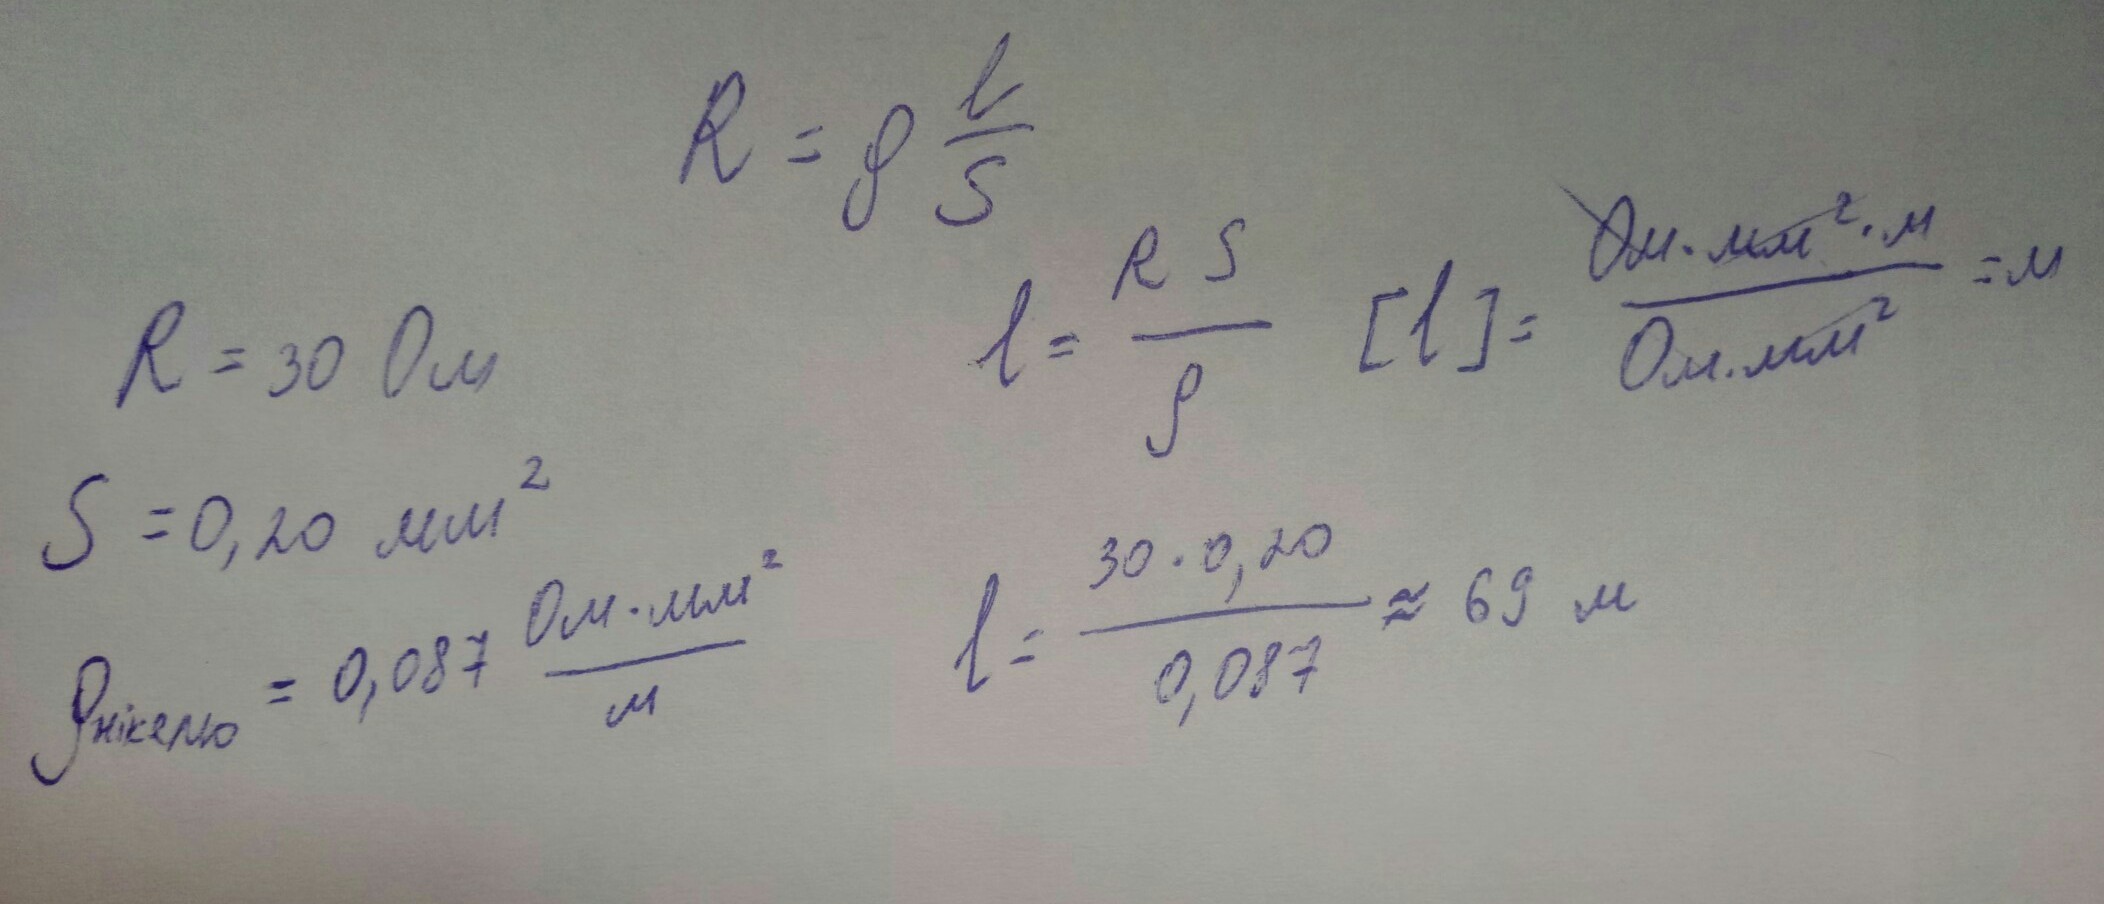 R = ρ l/S
R = 30 Ом
S = 0,20 мм²
ρнікелю = 0,087 Ом·мм²/м
l = R S/ρ [l] = Ом·мм²·м/Ом·мм² = м
l = 30·0,20/0,087 ≈ 69 м